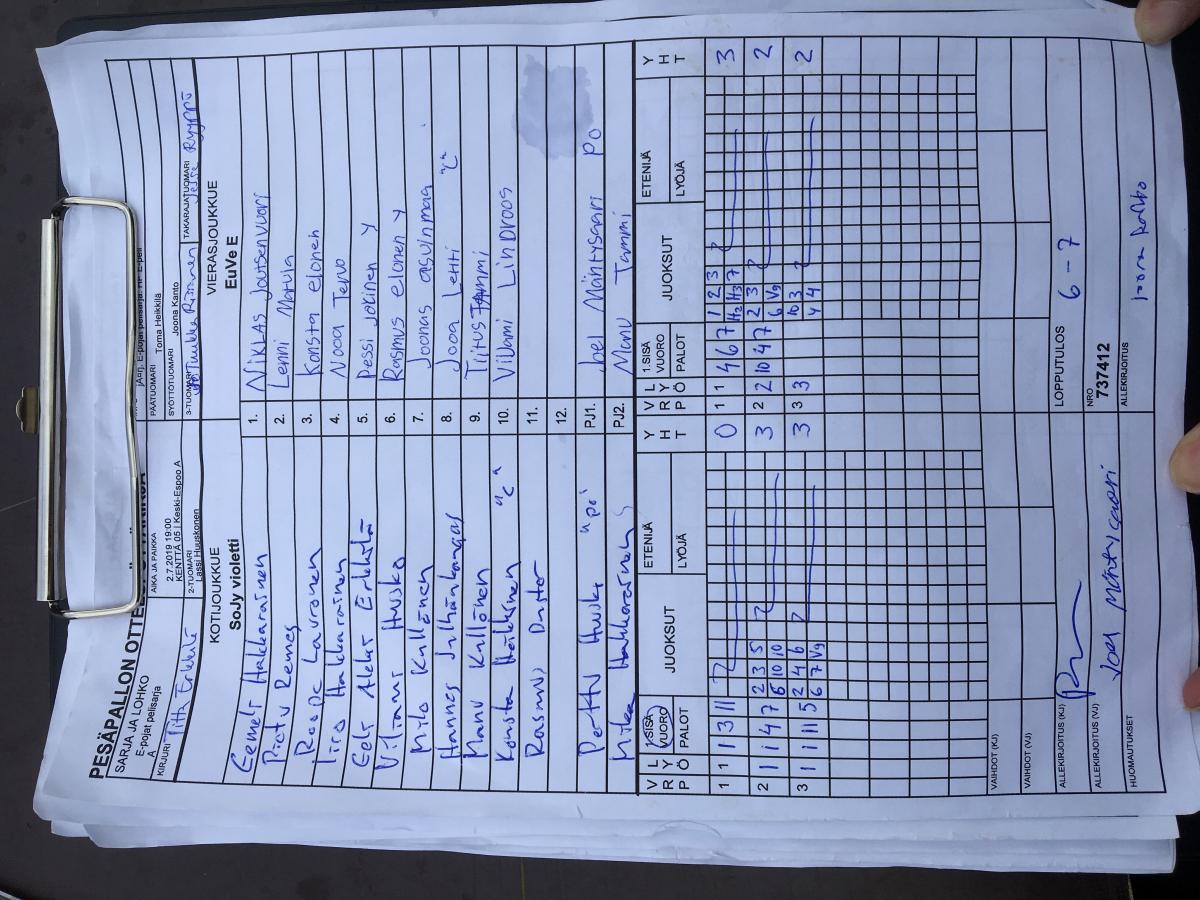 PESÄPALLON OTTELU
SARJA JA LOHKO
E-pojat pelisarja
A
AIKA JA PAIKKA
2.7.2019 19:00
KENTTÄ 05 | Keski-Espoo A
PÄÄTUOMARI Toma Heikkilä
SYÖTTÖTUOMARI Joona Kanto
KIRJURI
2-TUOMARI
Lassi Huuskonen
3-TUOMARI
TAKARAJATUOMARI
Ryyppö
KOTIJOUKKUE
SoJy violetti
VIERASJOUKKUE
EuVe E
Eemeli Hakkarainen 1. Niklas Joutsenvuori
Pietu Remes 2. Lenni Matula
Roope Lavronen 3. Konsta elonen
Iiro Hakkarainen 4. Nooa Tervo
Eeli Aleksi Erkkilä 5. Pessi Jokinen Y
Viljami Husko 6. Rasmus elonen Y
Milo Kyllönen 7. Joonas asuinmaa
Hannes Julhänkangas 8. Jooa Lehti "C"
Manu Kyllönen 9. Tiitus Tammi
Konsta "C" 10. Viljami LinDroos
Rasmus 11.
12.
Perttu Husko "pj" PJ1. Joel Mäntysaari PO
Mika Hakkarainen PJ2. Manu Tammi
V R P L Y Ö 1.SISÄ VUORO PALOT JUOKSUT ETENIJÄ LYÖJÄ Y H T
V R P L Y Ö 1.SISÄ VUORO PALOT JUOKSUT ETENIJÄ LYÖJÄ Y H T
1 1 1 3 11 0 1 1 4 6 7 1 2 3 3
H2 H3 7
2 1 1 4 7 2 3 5 3 2 2 10 4 7 2 3 2
6 10 10 6 Vg
3 1 1 11 5 2 4 6 3 3 3 10 3 2
6 7 Vg 4 4
VAIHDOT (KJ)
VAIHDOT (VJ)
ALLEKIRJOITUS (KJ)
LOPPUTULOS 6-7
ALLEKIRJOITUS (VJ) Joel Mäntysaari
NRO
737412
HUOMAUTUKSET
ALLEKIRJOITUS